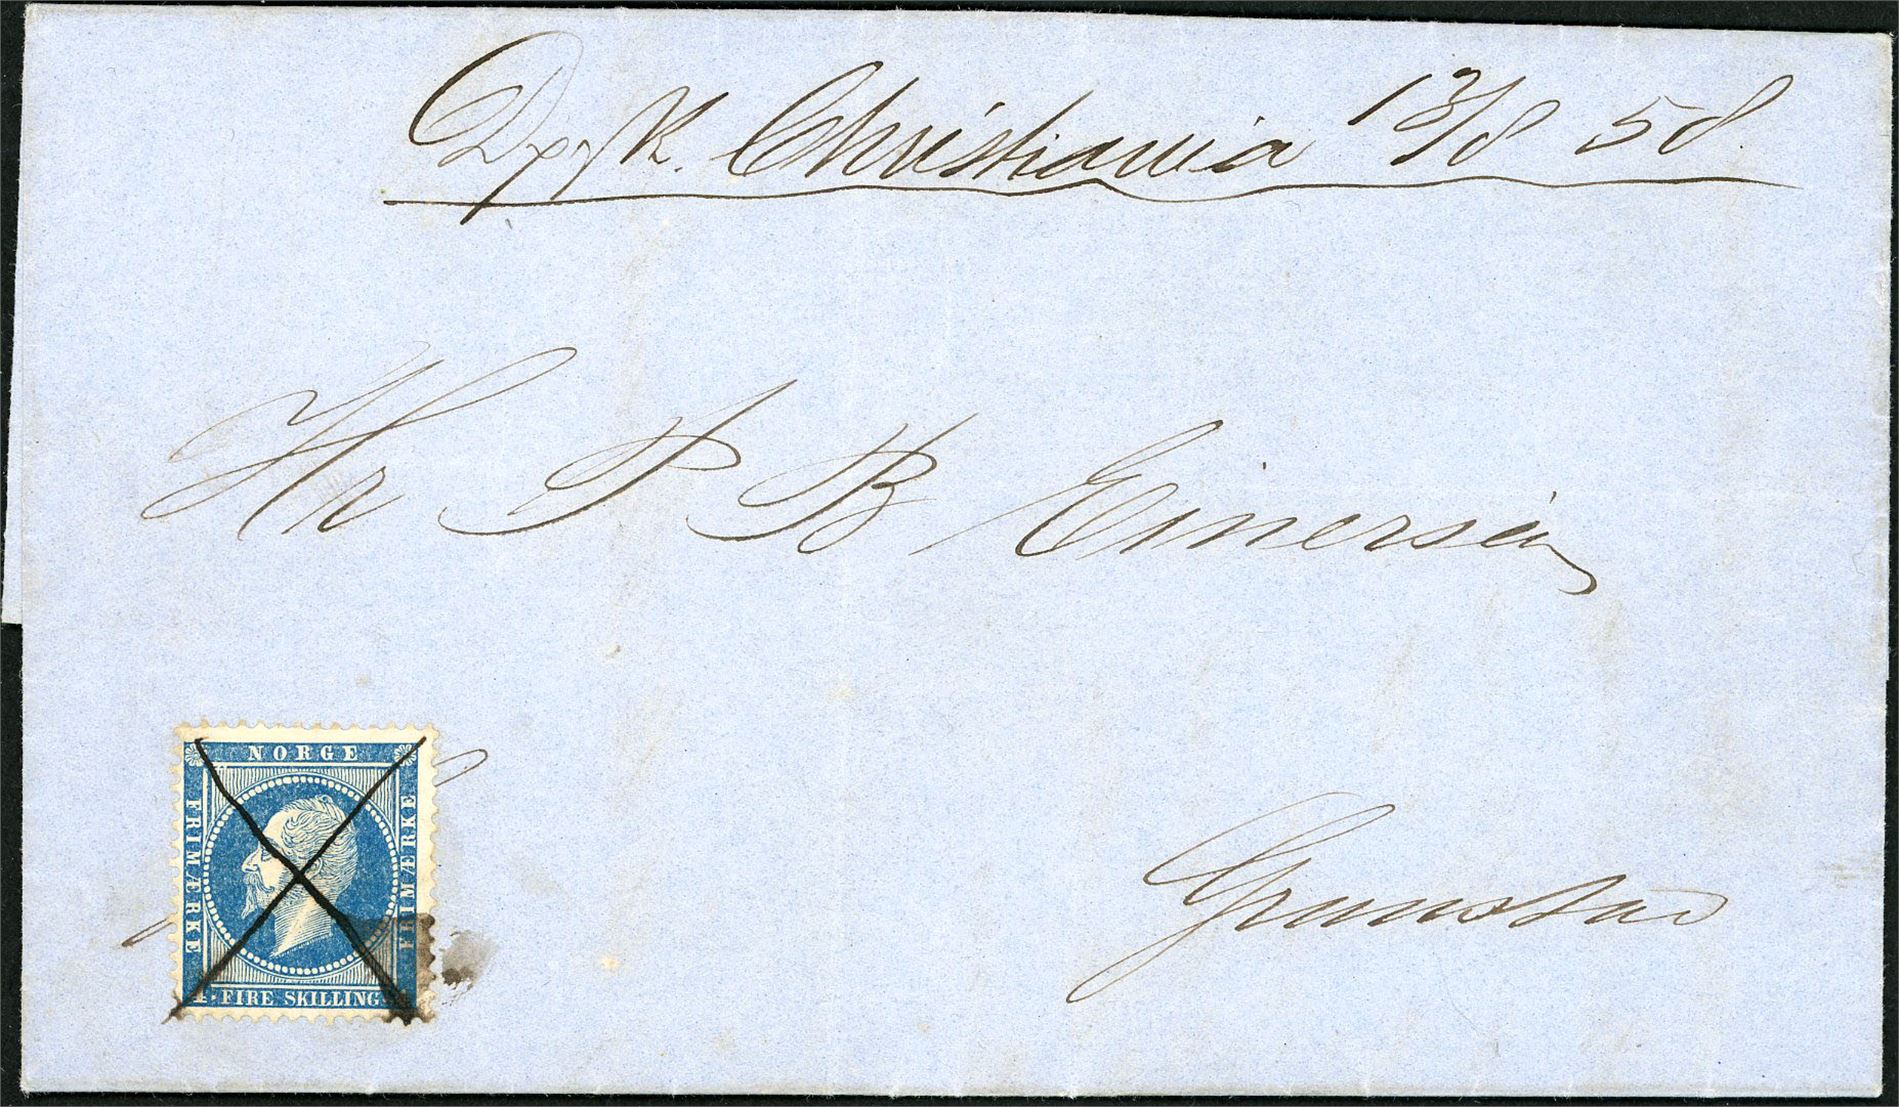 Dpsk. Christiania 13/8 58.
Hr P B Einersen
Grimstad
NORGE
FRIMÆRKE
FRIMÆRKE
4. FIRE SKILLING.